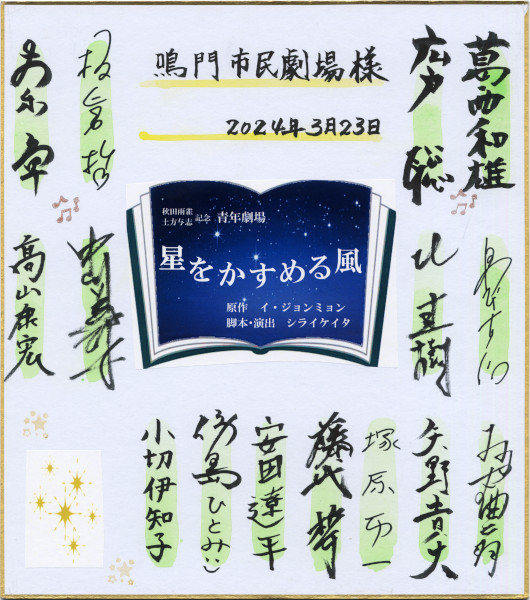 鳴門市民劇場様
2024年3月23日
葛西和雄
広戸聡
秋田雨雀
土方与志
記念 青年劇場
星をかすめる風
原作 イ・ジョンミョン
脚本・演出 シライケイタ
板倉哲
高山康宏
矢野貴大
塚原万一
藤代梓
安田遼平
傍島ひとみ
小切伊知子